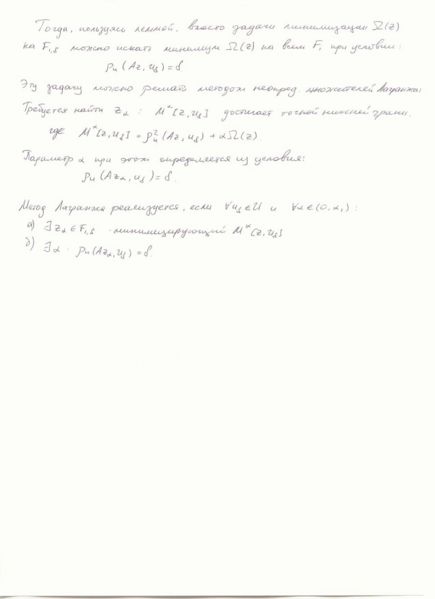 Тогда, пользуясь леммой, вместо задачи минимизации Ω(z)
на F₁,δ можно искать минимум Ω(z) на всем F₁ при условии:
ρᵤ(Az, u_δ) = δ
Эту задачу можно решать методом неопред. множителей Лагранжа:
Требуется найти z_α : M^α[z, u_δ] достигает точной нижней грани.
где M^α[z, u_δ] = ρᵤ²(Az, u_δ) + αΩ(z)
Параметр α при этом определяется из условия:
ρᵤ(Az_α, u_δ) = δ.
Метод Лагранжа реализуется, если ∀u_δ ∈ U и ∀α ∈ (0, α₁) :
а) ∃ z_α ∈ F₁,δ - минимизирующий M^α[z, u_δ]
б) ∃ α : ρᵤ(Az_α, u_δ) = δ.